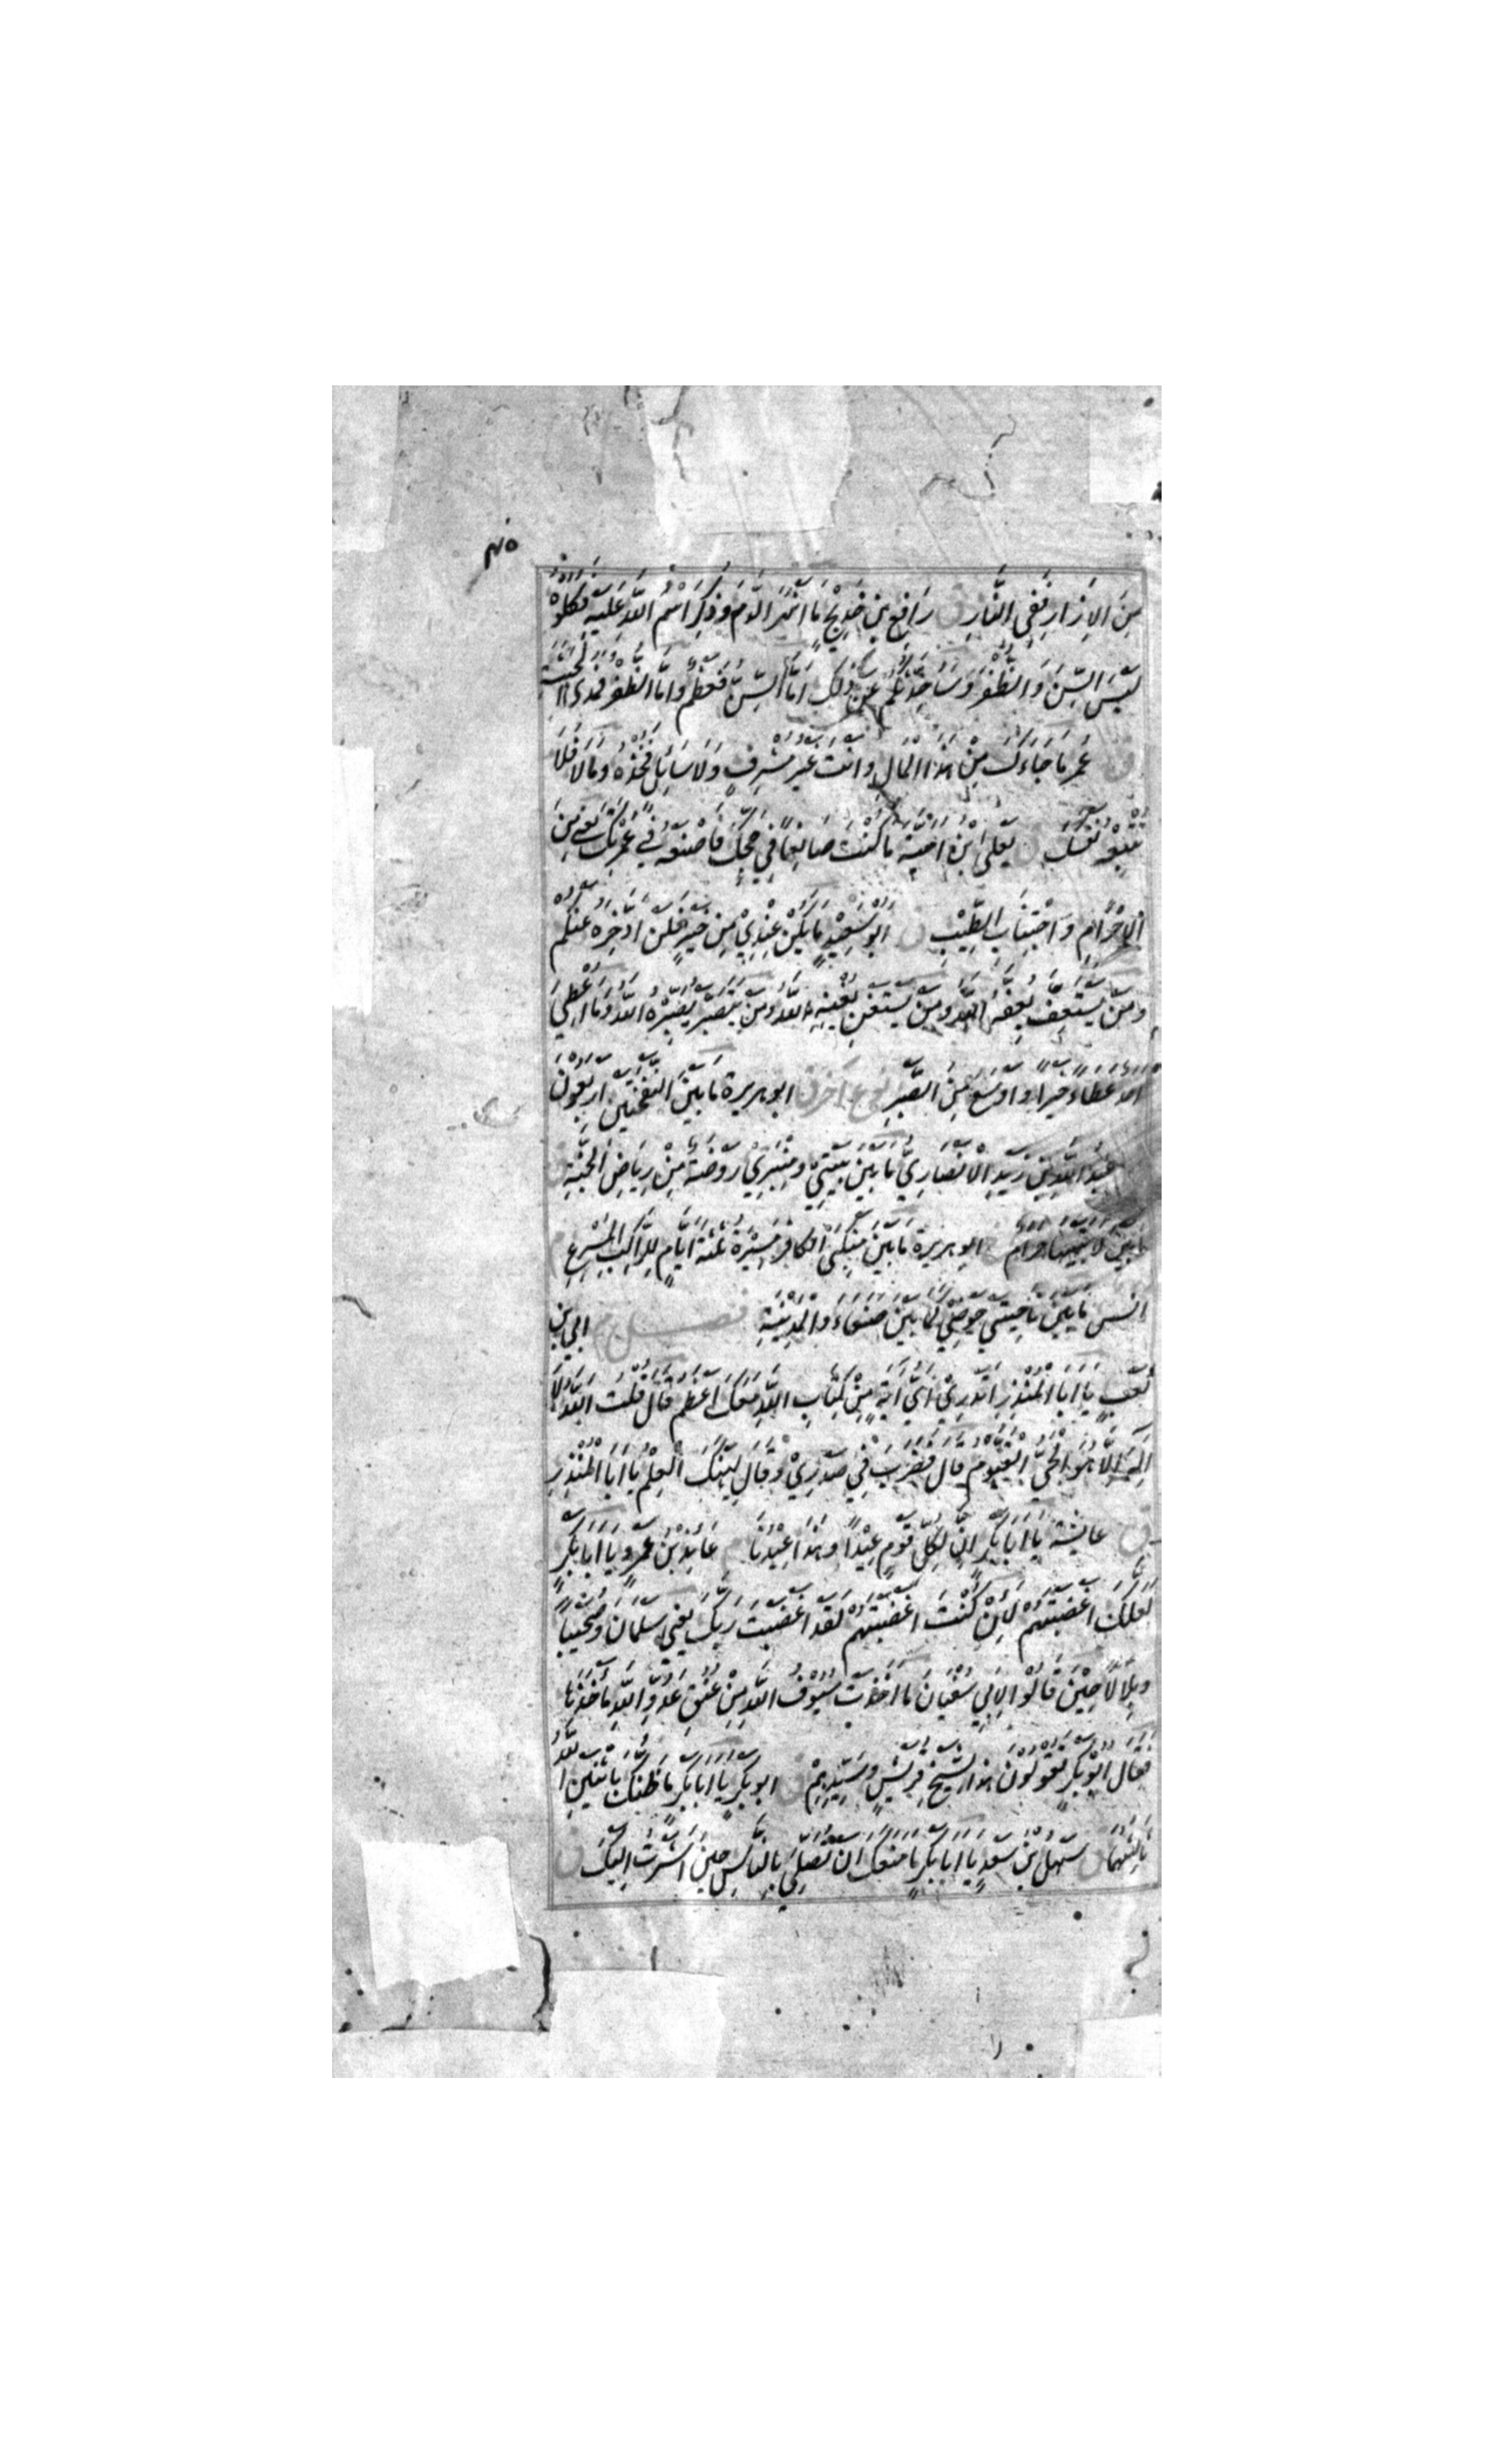 ۴۵
مِنَ الاِزَارِ فَفِي النَّارِ ق رَافِعُ بنِ خَدِيْجٍ مَا اَنْهَرَ الدَّمَ وَذُكِرَ اسْمُ اللّٰهِ عَلَيْهِ فَكُلُوْهُ
لَيْسَ السِّنَ وَالظُّفُرَ وَسَاُحَدِّثُكُمْ عَنْ ذٰلِكَ اَمَّا السِّنُّ فَعَظْمٌ وَاَمَّا الظُّفُرُ فَمُدَى الْحَبَشَةِ
ق عُمَر مَا جَاءَكَ مِنْ هٰذَا الْمَالِ وَاَنْتَ غَيْرُ مُشْرِفٍ وَلَا سَائِلٍ فَخُذْهُ وَمَالَا فَلَا
تُتْبِعْهُ نَفْسَكَ ق يَعْلَى ابْنُ اُمَيَّةَ مَا كُنْتَ صَانِعًا فِي حَجِّكَ فَاصْنَعْهُ فِي عُمْرَتِكَ يَعْنِي مِنَ
الاِحْرَامِ وَاجْتِنَابِ الطِّيْبِ ق اَبُو سَعِيْدٍ مَا يَكُنْ عِنْدِيْ مِنْ خَيْرٍ فَلَنْ اَدَّخِرَهُ عَنْكُمْ
وَمَنْ يَسْتَعِفَّ يُعِفَّهُ اللّٰهُ وَمَنْ يَسْتَغْنِ يُغْنِهِ اللّٰهُ وَمَنْ يَتَصَبَّرْ يُصَبِّرْهُ اللّٰهُ وَمَا اُعْطِيَ
اَحَدٌ عَطَاءً خَيْرًا وَاَوْسَعَ مِنَ الصَّبْرِ نوع آخر ق ابو هريرة مَا بَيْنَ النَّفْخَتَيْنِ اَرْبَعُوْنَ
عَبْدُ اللّٰهِ بْنُ زَيْدِ الْاَنْصَارِيُّ مَا بَيْنَ بَيْتِيْ وَمِنْبَرِيْ رَوْضَةٌ مِنْ رِيَاضِ الْجَنَّةِ
مَا بَيْنَ لَابَتَيْهَا حَرَامٌ ابو هريرة مَا بَيْنَ مَنْكِبَيِ الْكَافِرِ مَسِيْرَةُ ثَلٰثَةِ اَيَّامٍ لِلرَّاكِبِ الْمُسْرِعِ
انس مَا بَيْنَ نَاحِيَتَيْ حَوْضِيْ كَمَا بَيْنَ صَنْعَاءَ وَالْمَدِيْنَةِ فصل م ابي بن
كَعْبٍ يَا اَبَا الْمُنْذِرِ اَتَدْرِيْ اَيُّ اٰيَةٍ مِنْ كِتَابِ اللّٰهِ مَعَكَ اَعْظَمُ قَالَ قُلْتُ اللّٰهُ لَا
اِلٰهَ اِلَّا هُوَ الْحَيُّ الْقَيُّوْمُ قَالَ فَضَرَبَ فِيْ صَدْرِيْ وَقَالَ لِيَهْنِكَ الْعِلْمُ يَا اَبَا الْمُنْذِرِ
ق عايشة يَا اَبَا بَكْرٍ اِنَّ لِكُلِّ قَوْمٍ عِيْدًا وَهٰذَا عِيْدُنَا م عَايِذُ بْنُ عَمْرٍو يَا اَبَا بَكْرٍ
لَعَلَّكَ اَغْضَبْتَهُمْ لَئِنْ كُنْتَ اَغْضَبْتَهُمْ لَقَدْ اَغْضَبْتَ رَبَّكَ يَعْنِي سَلْمَانَ وَصُهَيْبًا
وَبِلَالًا حِيْنَ قَالُوْا لِاَبِيْ سُفْيَانَ مَا اَخَذَتْ سُيُوْفُ اللّٰهِ مِنْ عُنُقِ عَدُوِّ اللّٰهِ مَأْخَذَهَا
فَقَالَ اَبُوْ بَكْرٍ تَقُوْلُوْنَ هٰذَا لِشَيْخِ قُرَيْشٍ وَسَيِّدِهِمْ ق ابو بكر يَا اَبَا بَكْرٍ مَا ظَنُّكَ بِاثْنَيْنِ اللّٰهُ
ثَالِثُهُمَا ق سَهْلُ بْنُ سَعْدٍ يَا اَبَا بَكْرٍ مَا مَنَعَكَ اَنْ تُصَلِّيَ بِالنَّاسِ حِيْنَ اَشَرْتُ اِلَيْكَ ق